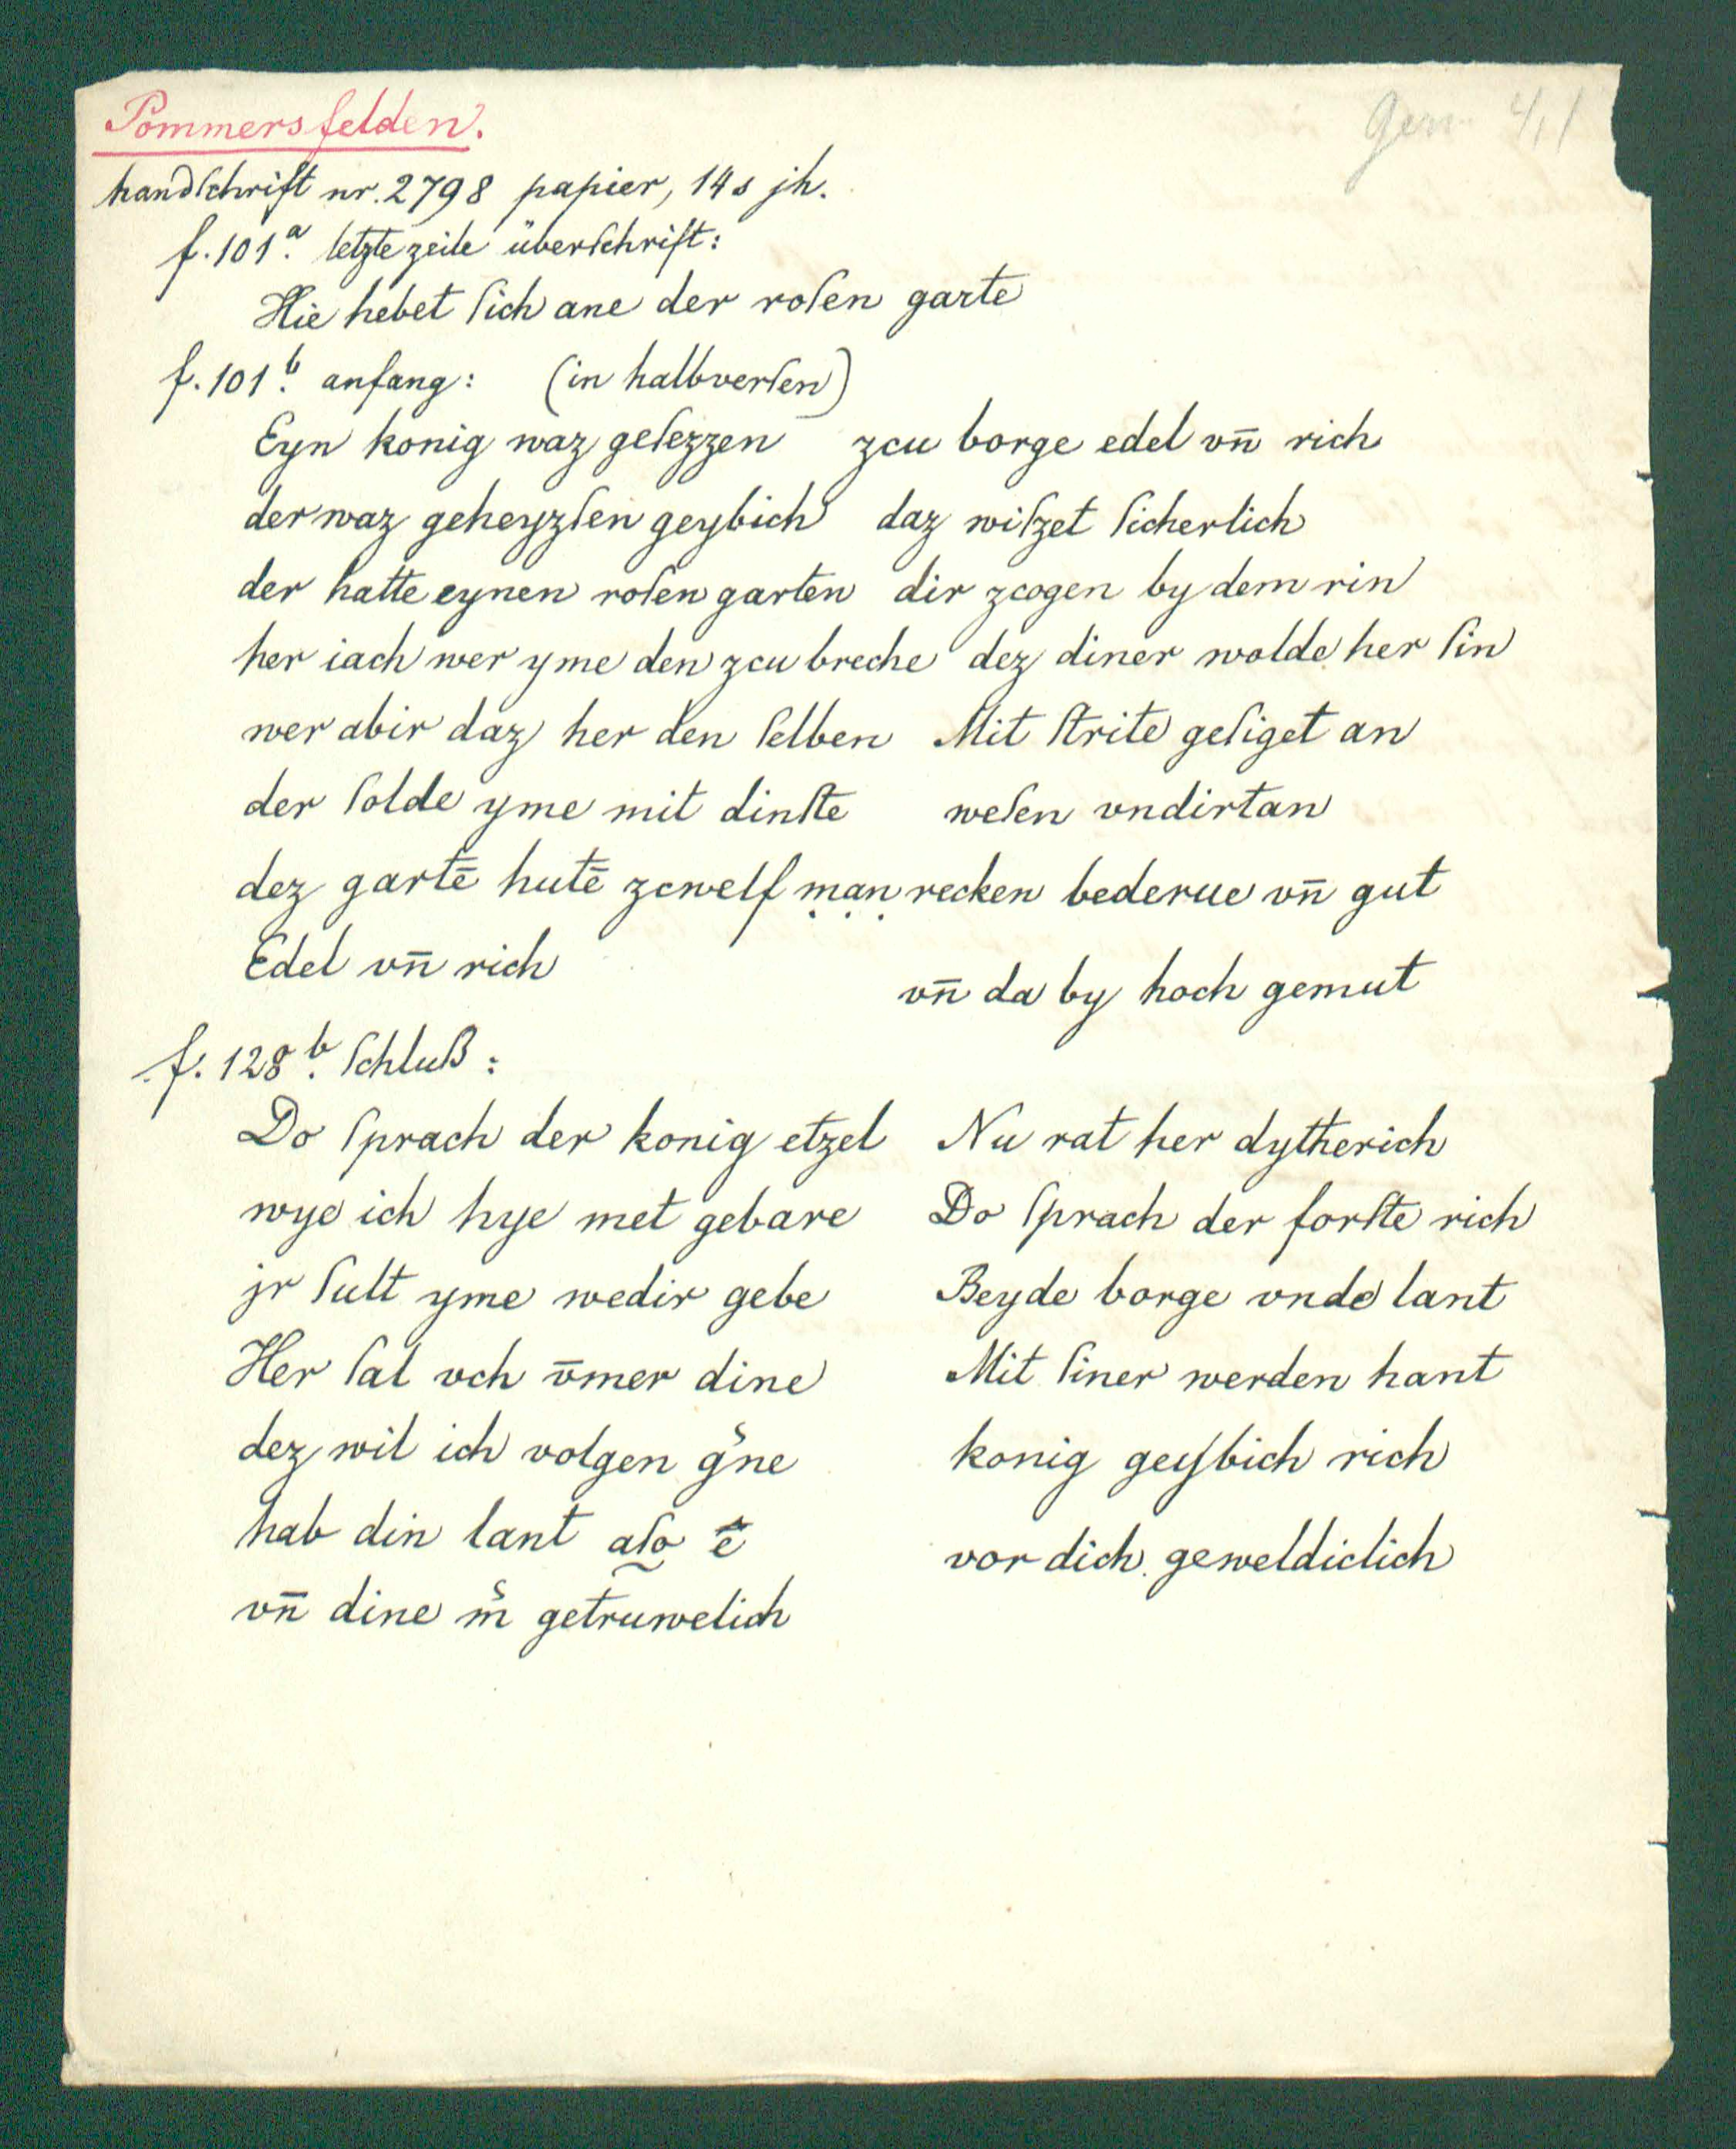 Pommersfelden.
Germ 4,1
handſchrift nr. 2798 papier, 14s jh.
f. 101ᵃ. letzte zeile überſchrift:
Hie hebet ſich ane der roſen garte
f. 101ᵇ. anfang: (in halbverſen)
Eyn konig waz geſezzen zcu borge edel vn̄ rich
der waz geheyzſen geybich daz wiſzet ſicherlich
der hatte eynen roſen garten dir zcogen by dem rin
her iach wer yme den zcu breche dez diner wolde her ſin
wer abir daz her den ſelben Mit ſtrite geſiget an
der ſolde yme mit dinſte weſen vndirtan
dez gartē hutē zcwelf ṃạṇ recken bederue vn̄ gut
Edel vn̄ rich vn̄ da by hoch gemut
f. 128ᵇ. ſchluß:
Do ſprach der konig etzel Nu rat her dytherich
wye ich hye met gebare Do ſprach der forſte rich
jr ſult yme wedir gebe Beyde borge vnde lant
Her ſal vch v̄mer dine Mit ſiner werden hant
dez wil ich volgen g͛ne konig geybich rich
hab din lant alſo ē vor dich geweldiclich
vn̄ dine m͛ getruwelich